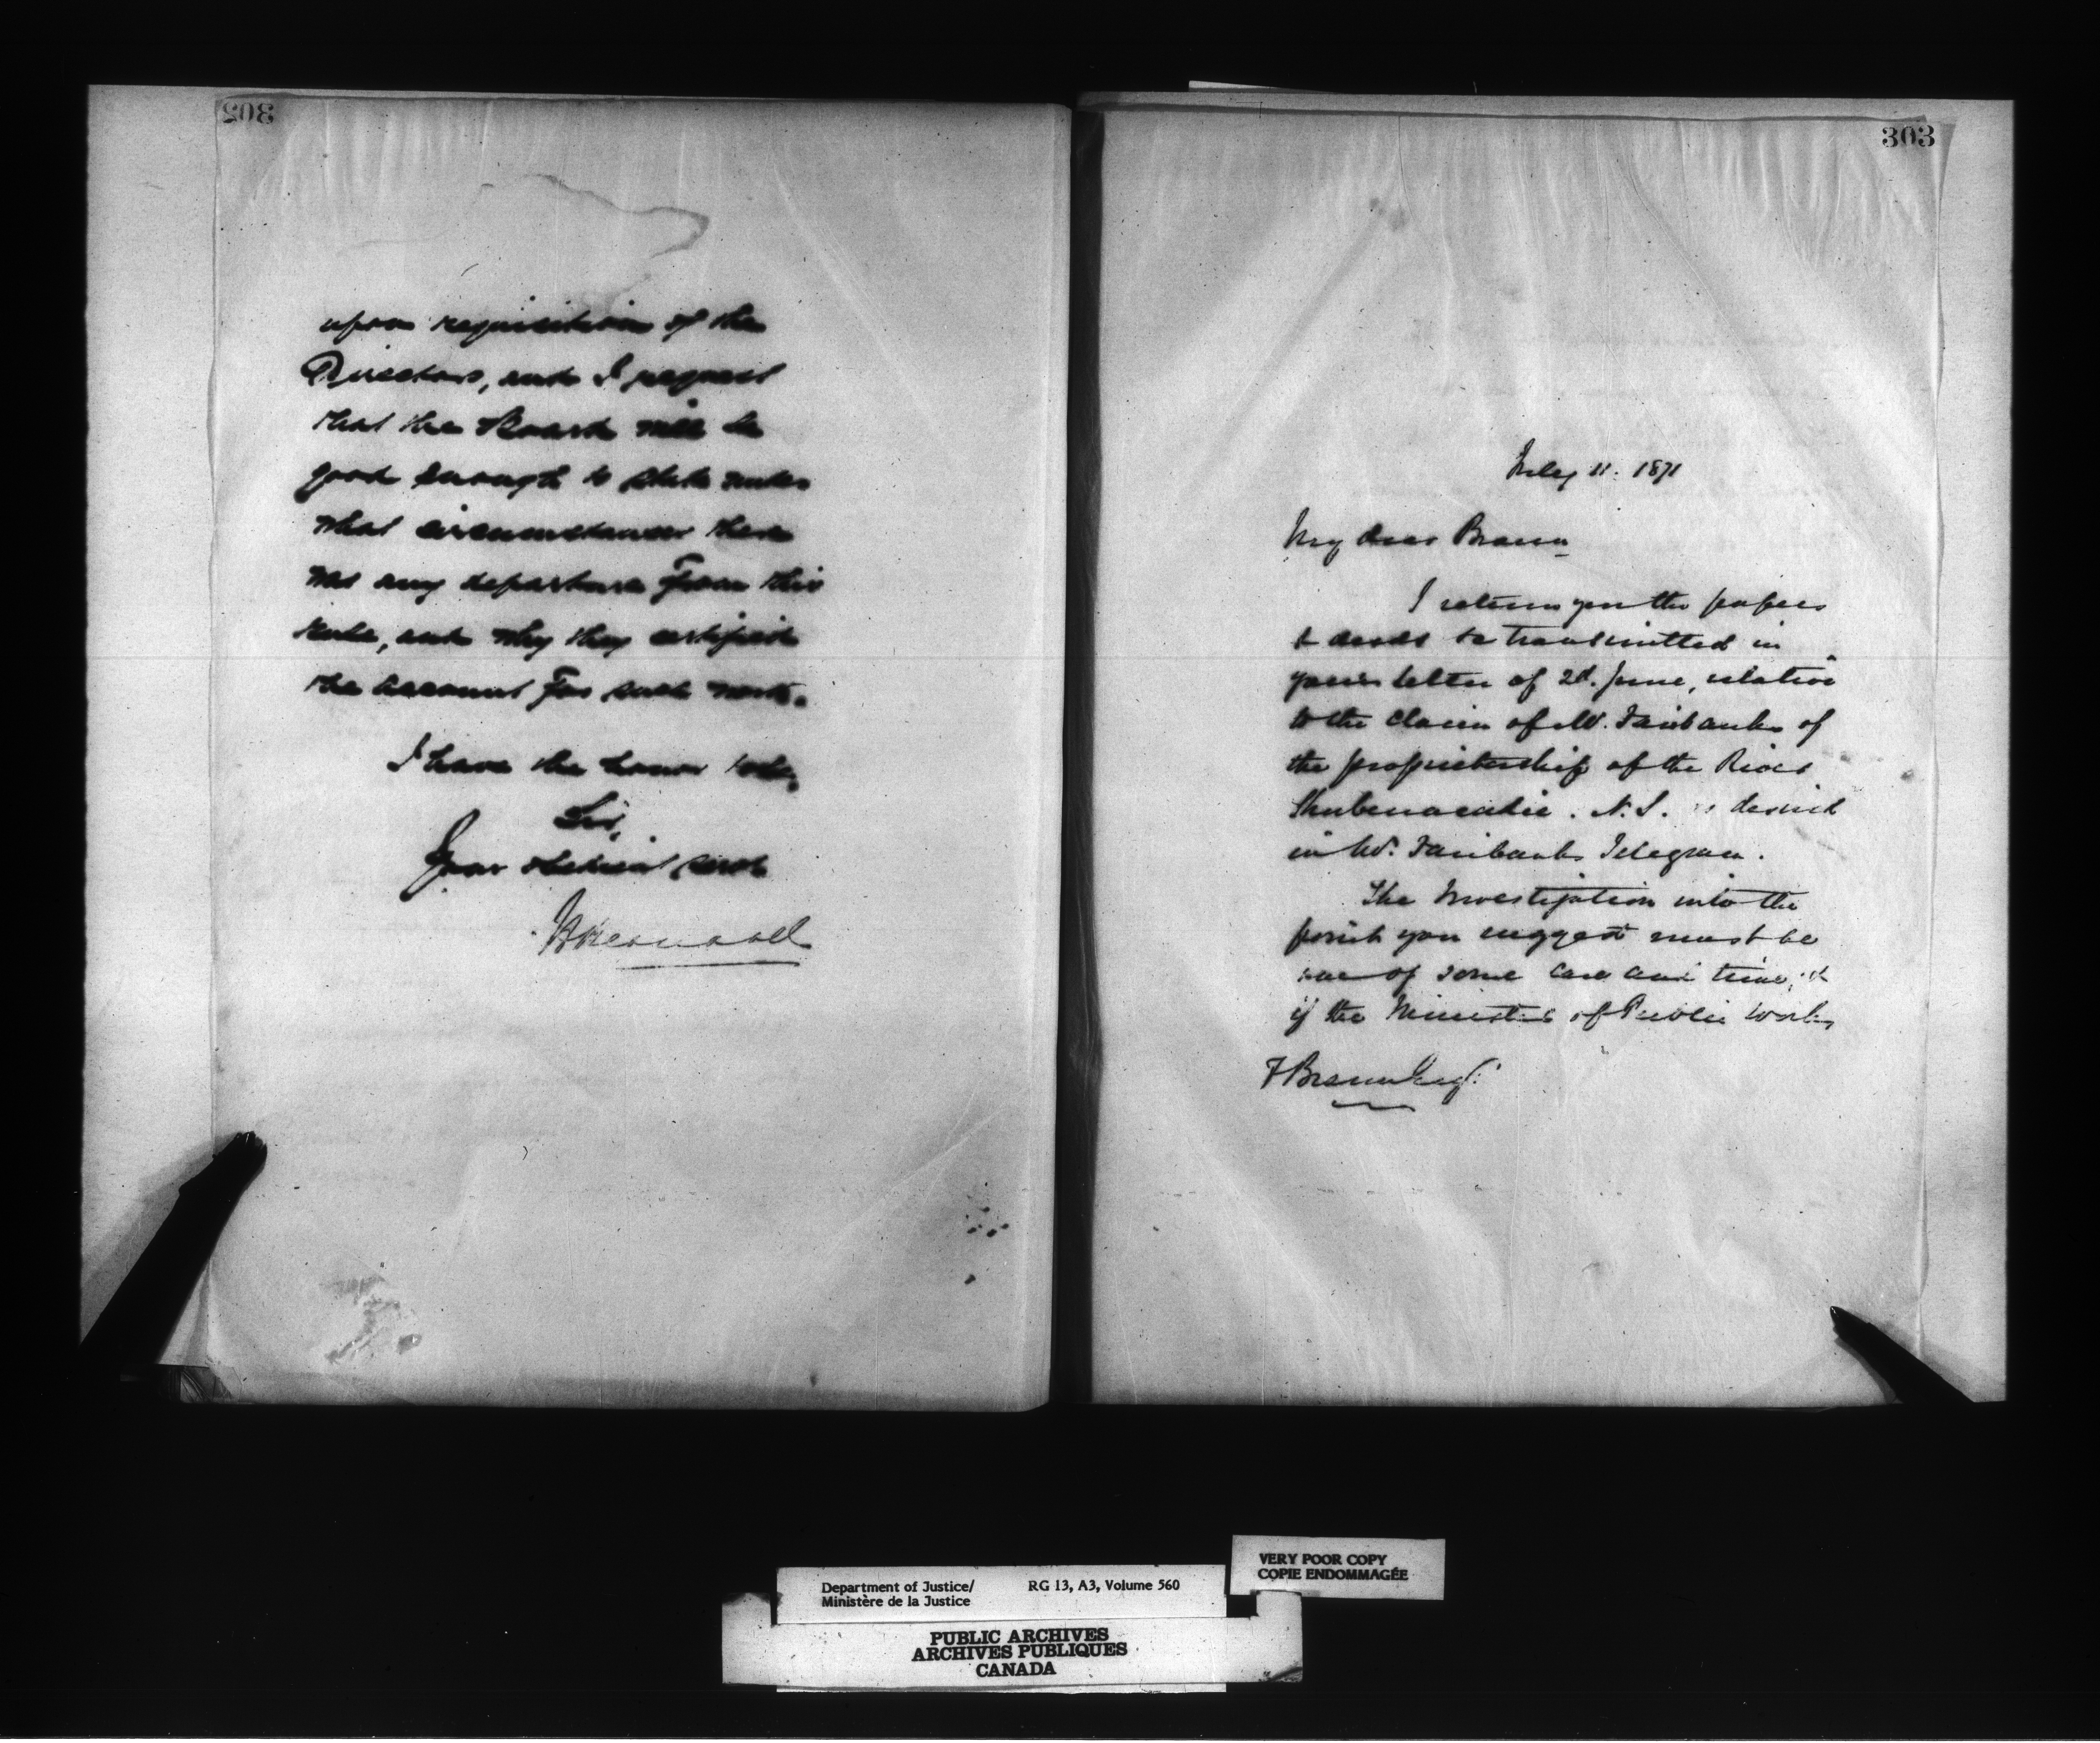 302
upon requisition of the
Directors, and I request
that the Board will be
good enough to state under
what circumstances there
was any departure from this
rule, and why they certified
the account for such work.
I have the honor to be,
Sir,
Your obedient Servt
303
July 11. 1871
My dear Braun
I return you the papers
& deeds &c transmitted in
your letter of 2d. June, relative
to the claim of Mr. Fairbanks of
the proprietorship of the River
Shubenacadie. N.S. as desired
in Mr. Fairbanks Telegram.
The Investigation into the
points you suggest must be
one of some care and time, &
if the Minister of Public Works
F Braun Esq.
VERY POOR COPY
COPIE ENDOMMAGÉE
Department of Justice/ RG 13, A3, Volume 560
Ministère de la Justice
PUBLIC ARCHIVES
ARCHIVES PUBLIQUES
CANADA